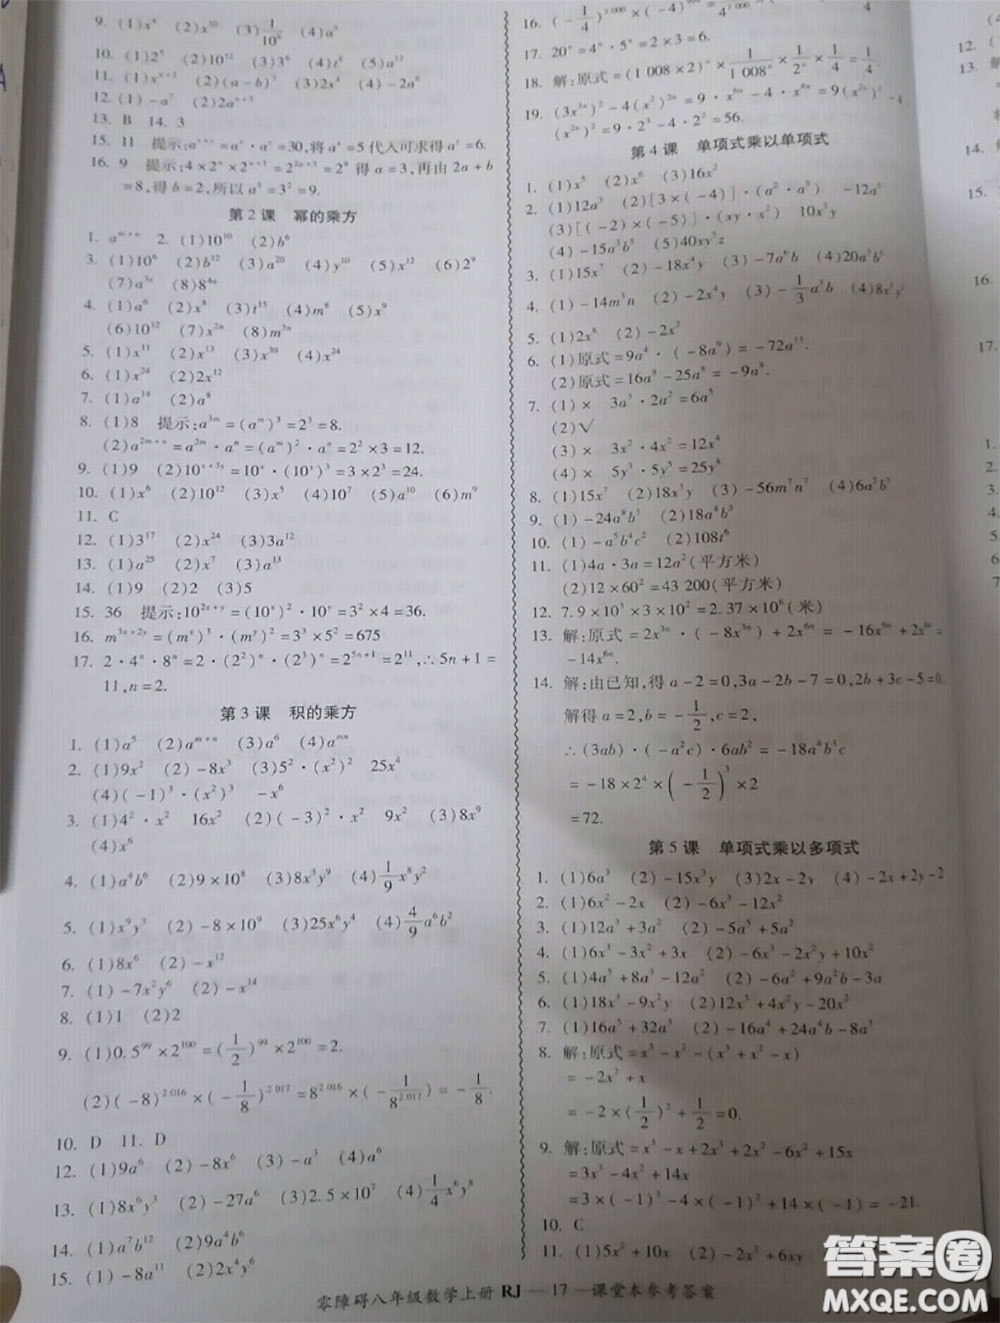 9. (1)x⁵ (2)x¹⁰ (3)1/10⁶ (4)a⁵
10. (1)x⁷ (2)10¹² (3)3⁶ (4)t⁶ (5)a¹²
12. (1)-a⁷ (2)2aⁿ⁺³
13. B 14. 3
第 2 课 幂的乘方
1. aᵐ⁺ⁿ 2. (1)10¹⁰ (2)b⁶
3. (1)10⁶ (2)b¹² (3)a²⁰ (4)y¹⁰ (5)x¹² (6)2⁹
4. (1)a⁶ (2)x⁸ (3)t¹⁵ (4)m⁸ (5)x⁹
(6)10¹² (7)x²ⁿ (8)m³ⁿ
5. (1)x¹¹ (2)x¹³ (3)x³⁰ (4)x²⁴
6. (1)x²⁴ (2)2x¹²
7. (1)a¹⁴ (2)a⁸
8. (1)8 提示:a³ᵐ=(aᵐ)³=2³=8.
(2)a²ᵐ⁺ⁿ=a²ᵐ·aⁿ=(aᵐ)²·aⁿ=2²×3=12.
9. (1)9 (2)10ˣ⁺³ʸ=10ˣ·(10ʸ)³=3×2³=24.
10. (1)x⁶ (2)10¹² (3)x⁵ (4)10⁷ (5)a¹⁰ (6)m⁹
11. C
12. (1)3¹⁷ (2)x²⁴ (3)3a¹²
13. (1)a²⁵ (2)x⁷ (3)a¹³
14. (1)9 (2)2 (3)5
15. 36 提示:10²ˣ⁺ʸ=(10ˣ)²·10ʸ=3²×4=36.
16. m³ˣ⁺²ʸ=(mˣ)³·(mʸ)²=3³×5²=675
17. 2·4ⁿ·8ⁿ=2·(2²)ⁿ·(2³)ⁿ=2⁵ⁿ⁺¹=2¹¹,∴5n+1=
11,n=2.
第 3 课 积的乘方
1. (1)a⁵ (2)aᵐ⁺ⁿ (3)a⁶ (4)aᵐⁿ
2. (1)9x² (2)-8x³ (3)5²·(x²)² 25x⁴
(4)(-1)³·(x²)³ -x⁶
3. (1)4²·x² 16x² (2)(-3)²·x² 9x² (3)8x⁹
(4)x⁶
4. (1)a⁴b⁶ (2)9×10⁸ (3)8x³y⁹ (4)1/9x⁸y²
5. (1)x⁹y³ (2)-8×10⁹ (3)25x⁶y⁴ (4)4/9a⁶b²
6. (1)8x⁶ (2)-x¹²
7. (1)-7x²y⁶ (2)-x¹⁴
8. (1)1 (2)2
9. (1)0.5⁹⁹×2¹⁰⁰=(1/2)⁹⁹×2¹⁰⁰=2.
(2)(-8)²⁰¹⁶×(-1/8)²⁰¹⁷=8²⁰¹⁶×(-1/8²⁰¹⁷)=-1/8.
10. D 11. D
12. (1)9a⁶ (2)-8x⁶ (3)-a³ (4)a⁶
13. (1)8x⁶y³ (2)-27a⁶ (3)2.5×10⁷ (4)1/4x⁶y⁸
14. (1)a⁷b¹² (2)9a⁴b⁶
15. (1)-8a¹¹ (2)5a¹²
17. 20ⁿ=4ⁿ·5ⁿ=2×3=6.
18. 解:原式=(1 008×2)ⁿ×1/1 008ⁿ×1/2ⁿ×1/4=1/4
19. (3x³ⁿ)²-4(x²)³ⁿ=9·x⁶ⁿ-4·x⁶ⁿ=9(x²ⁿ)³-4
(x²ⁿ)³=9·2³-4·2³=56.
第 4 课 单项式乘以单项式
1. (1)x⁵ (2)x⁶ (3)16x²
2. (1)12a³ (2)[3×(-4)]·(a²·a³) -12a⁵
(3)[(-2)×(-5)]·(xy·x²) 10x³y
(4)-15a³b⁵ (5)40xy⁵z
3. (1)15x⁷ (2)-18x⁴y (3)-7a⁶b (4)20a³b⁵
4. (1)-14m³n (2)-2x⁴y (3)-1/3a³b (4)8x³y²
5. (1)2x⁸ (2)-2x²
6. (1)原式=9a⁴·(-8a⁹)=-72a¹³.
(2)原式=16a⁸-25a⁸=-9a⁸.
7. (1)× 3a³·2a²=6a⁵
(2)√
(3)× 3x²·4x²=12x⁴
(4)× 5y³·5y⁵=25y⁸
8. (1)15x⁷ (2)18x³y (3)-56m⁷n⁷ (4)6a⁵b²
9. (1)-24a⁸b³ (2)18a⁴b³
10. (1)-a⁵b⁴c² (2)108t⁶
11. (1)4a·3a=12a²(平方米)
(2)12×60²=43 200(平方米)
12. 7.9×10³×3×10²=2.37×10⁶(米)
13. 解:原式=2x³ⁿ·(-8x³ⁿ)+2x⁶ⁿ=-16x⁶ⁿ+2x⁶ⁿ=
-14x⁶ⁿ.
14. 解:由已知,得a-2=0,3a-2b-7=0,2b+3c-5=0.
解得a=2,b=-1/2,c=2,
∴(3ab)·(-a²c)·6ab²=-18a⁴b³c
=-18×2⁴×(-1/2)³×2
=72.
第 5 课 单项式乘以多项式
1. (1)6a³ (2)-15x³y (3)2x-2x² (4)-2x+2y
2. (1)6x²-2x (2)-6x³-12x²
3. (1)12a³+3a² (2)-5a³+5a²
4. (1)6x³-3x²+3x (2)-6x³-2x²y+10x
5. (1)4a⁵+8a³-12a² (2)-6a²+9a²b-3a
6. (1)18x³-9x²y (2)12x³+4x²y-20x²
7. (1)16a⁵+32a³ (2)-16a⁴+24a⁴b-8a³
8. 解:原式=x³-x²-(x³+x²-x)
=-2x²+x
=-2×(1/2)²+1/2=0.
9. 解:原式=x³-x+2x³+2x²-6x²+15x
=3x³-4x²+14x
=3×(-1)³-4×(-1)²+14×(-1)=-21.
10. C
11. (1)5x²+10x (2)-2x²+6xy
零障碍八年级数学上册 RJ — 17 —课堂本参考答案
答案圈
MXQE.COM